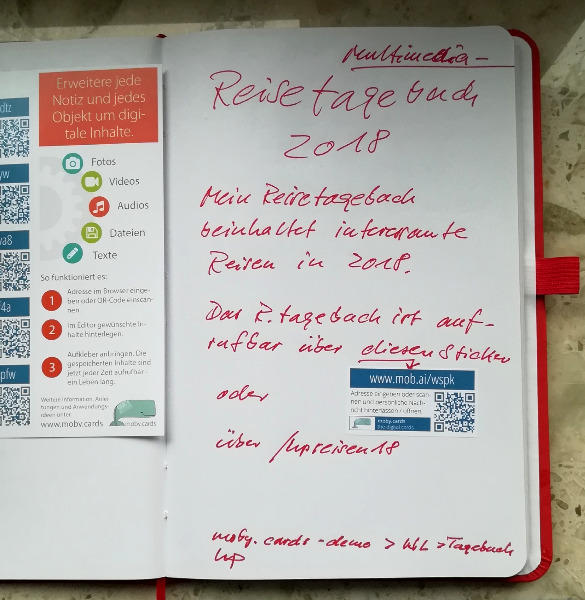 Erweitere jede
Notiz und jedes
Objekt um digi-
tale Inhalte.
Fotos
Videos
Audios
Dateien
Texte
So funktioniert es:
1
Adresse im Browser einge-
ben oder QR-Code einscan-
nen.
2
Im Editor gewünschte In-
halte hinterlegen.
3
Aufkleber anbringen. Die
gespeicherten Inhalte sind
jetzt jeder Zeit aufrufbar -
ein Leben lang.
Weitere Information, Anlei-
tungen und Anwendungs-
ideen unter
www.moby.cards
moby.cards
Multimedia-
Reisetagebuch
2018
Mein Reisetagebuch
beinhaltet interessante
Reisen in 2018.
Das R.tagebuch ist auf-
rufbar über diesen Sticker
www.mob.ai/wspk
Adresse eingeben oder scan-
nen und persönliche Nach-
richt hinterlassen / öffnen.
moby.cards
the digital cards
oder
über /hpreisen18
moby.cards-demo > WL > Tagebuch
hp